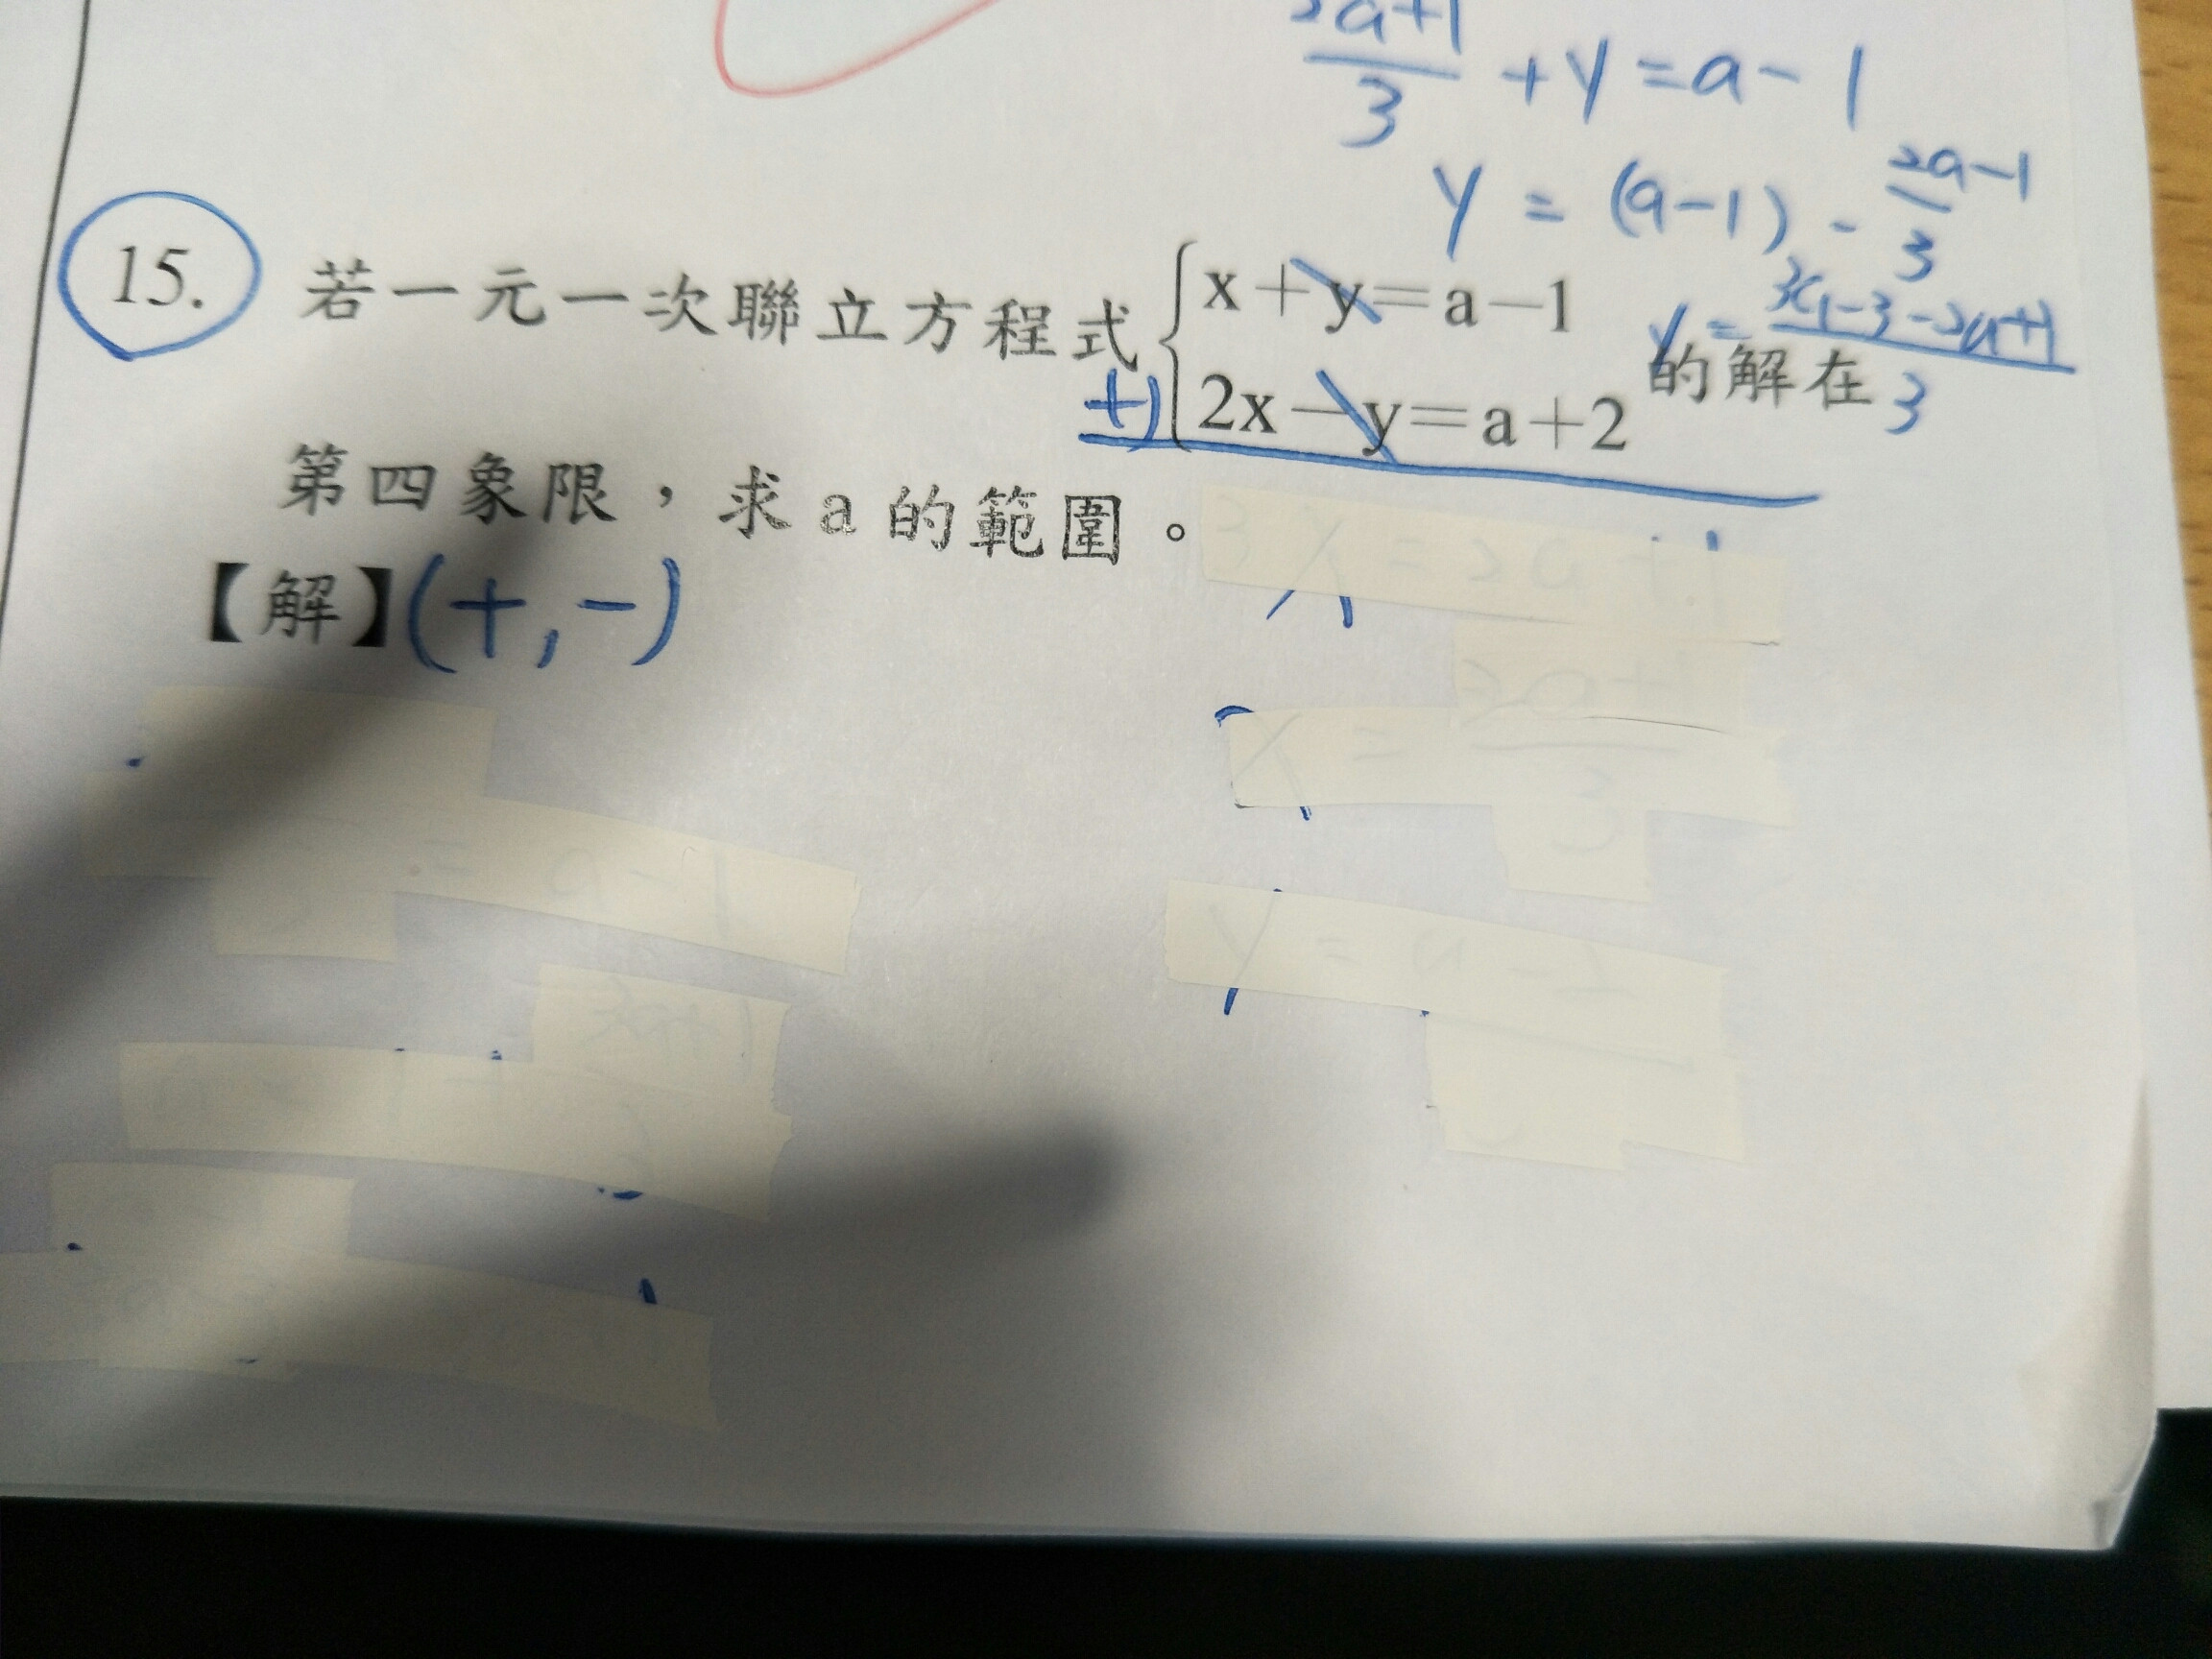 2a+1
3
+y=a-1
y = (a-1) - 2a-1
3
15. 若一元一次聯立方程式{x+y=a-1
2x-y=a+2
的解在
y = 3a-3-2a+1
3
+)
第四象限,求a的範圍。
【解】(+,-)